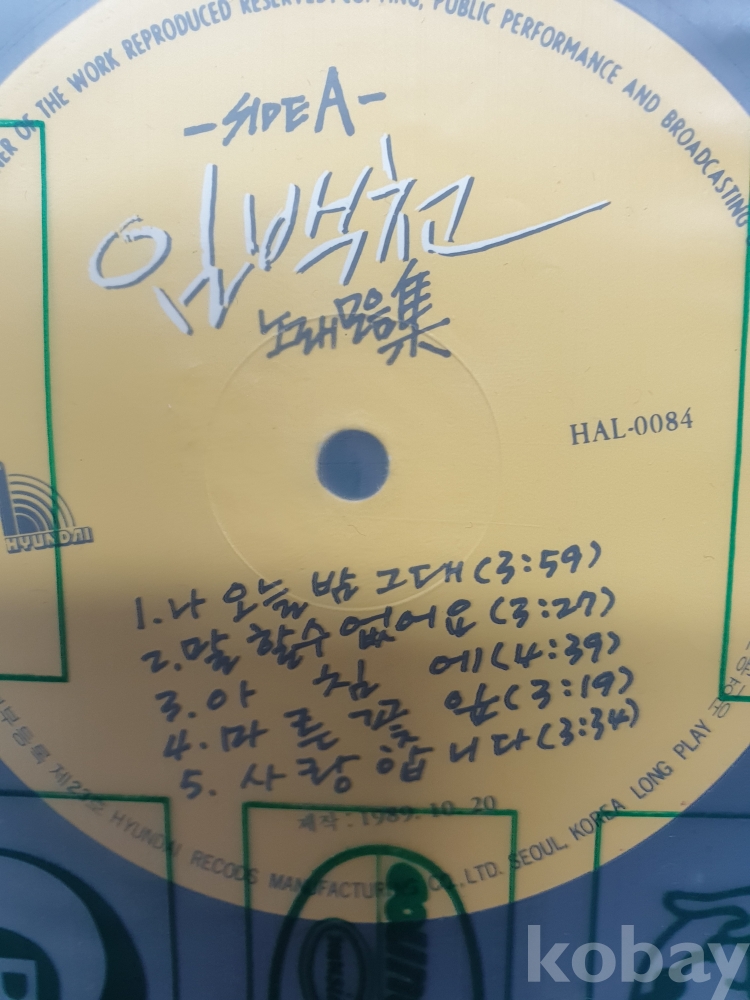 ER OF THE WORK REPRODUCED RESERVED. COPYING, PUBLIC PERFORMANCE AND BROADCASTING
-SIDE A-
임백천
노래모음集
HAL-0084
HYUNDAI
1. 나 오늘 밤 그대 (3:59)
2. 말 할수 없어요 (3:27)
3. 아 침 에 (4:39)
4. 마 른 꽃 잎 (3:19)
5. 사 랑 합 니 다 (3:34)
제작: 1989. 10. 20
부등록 제23호 HYUNDAI RECODS MANUFACTURING CO., LTD. SEOUL, KOREA LONG PLAY
kobay